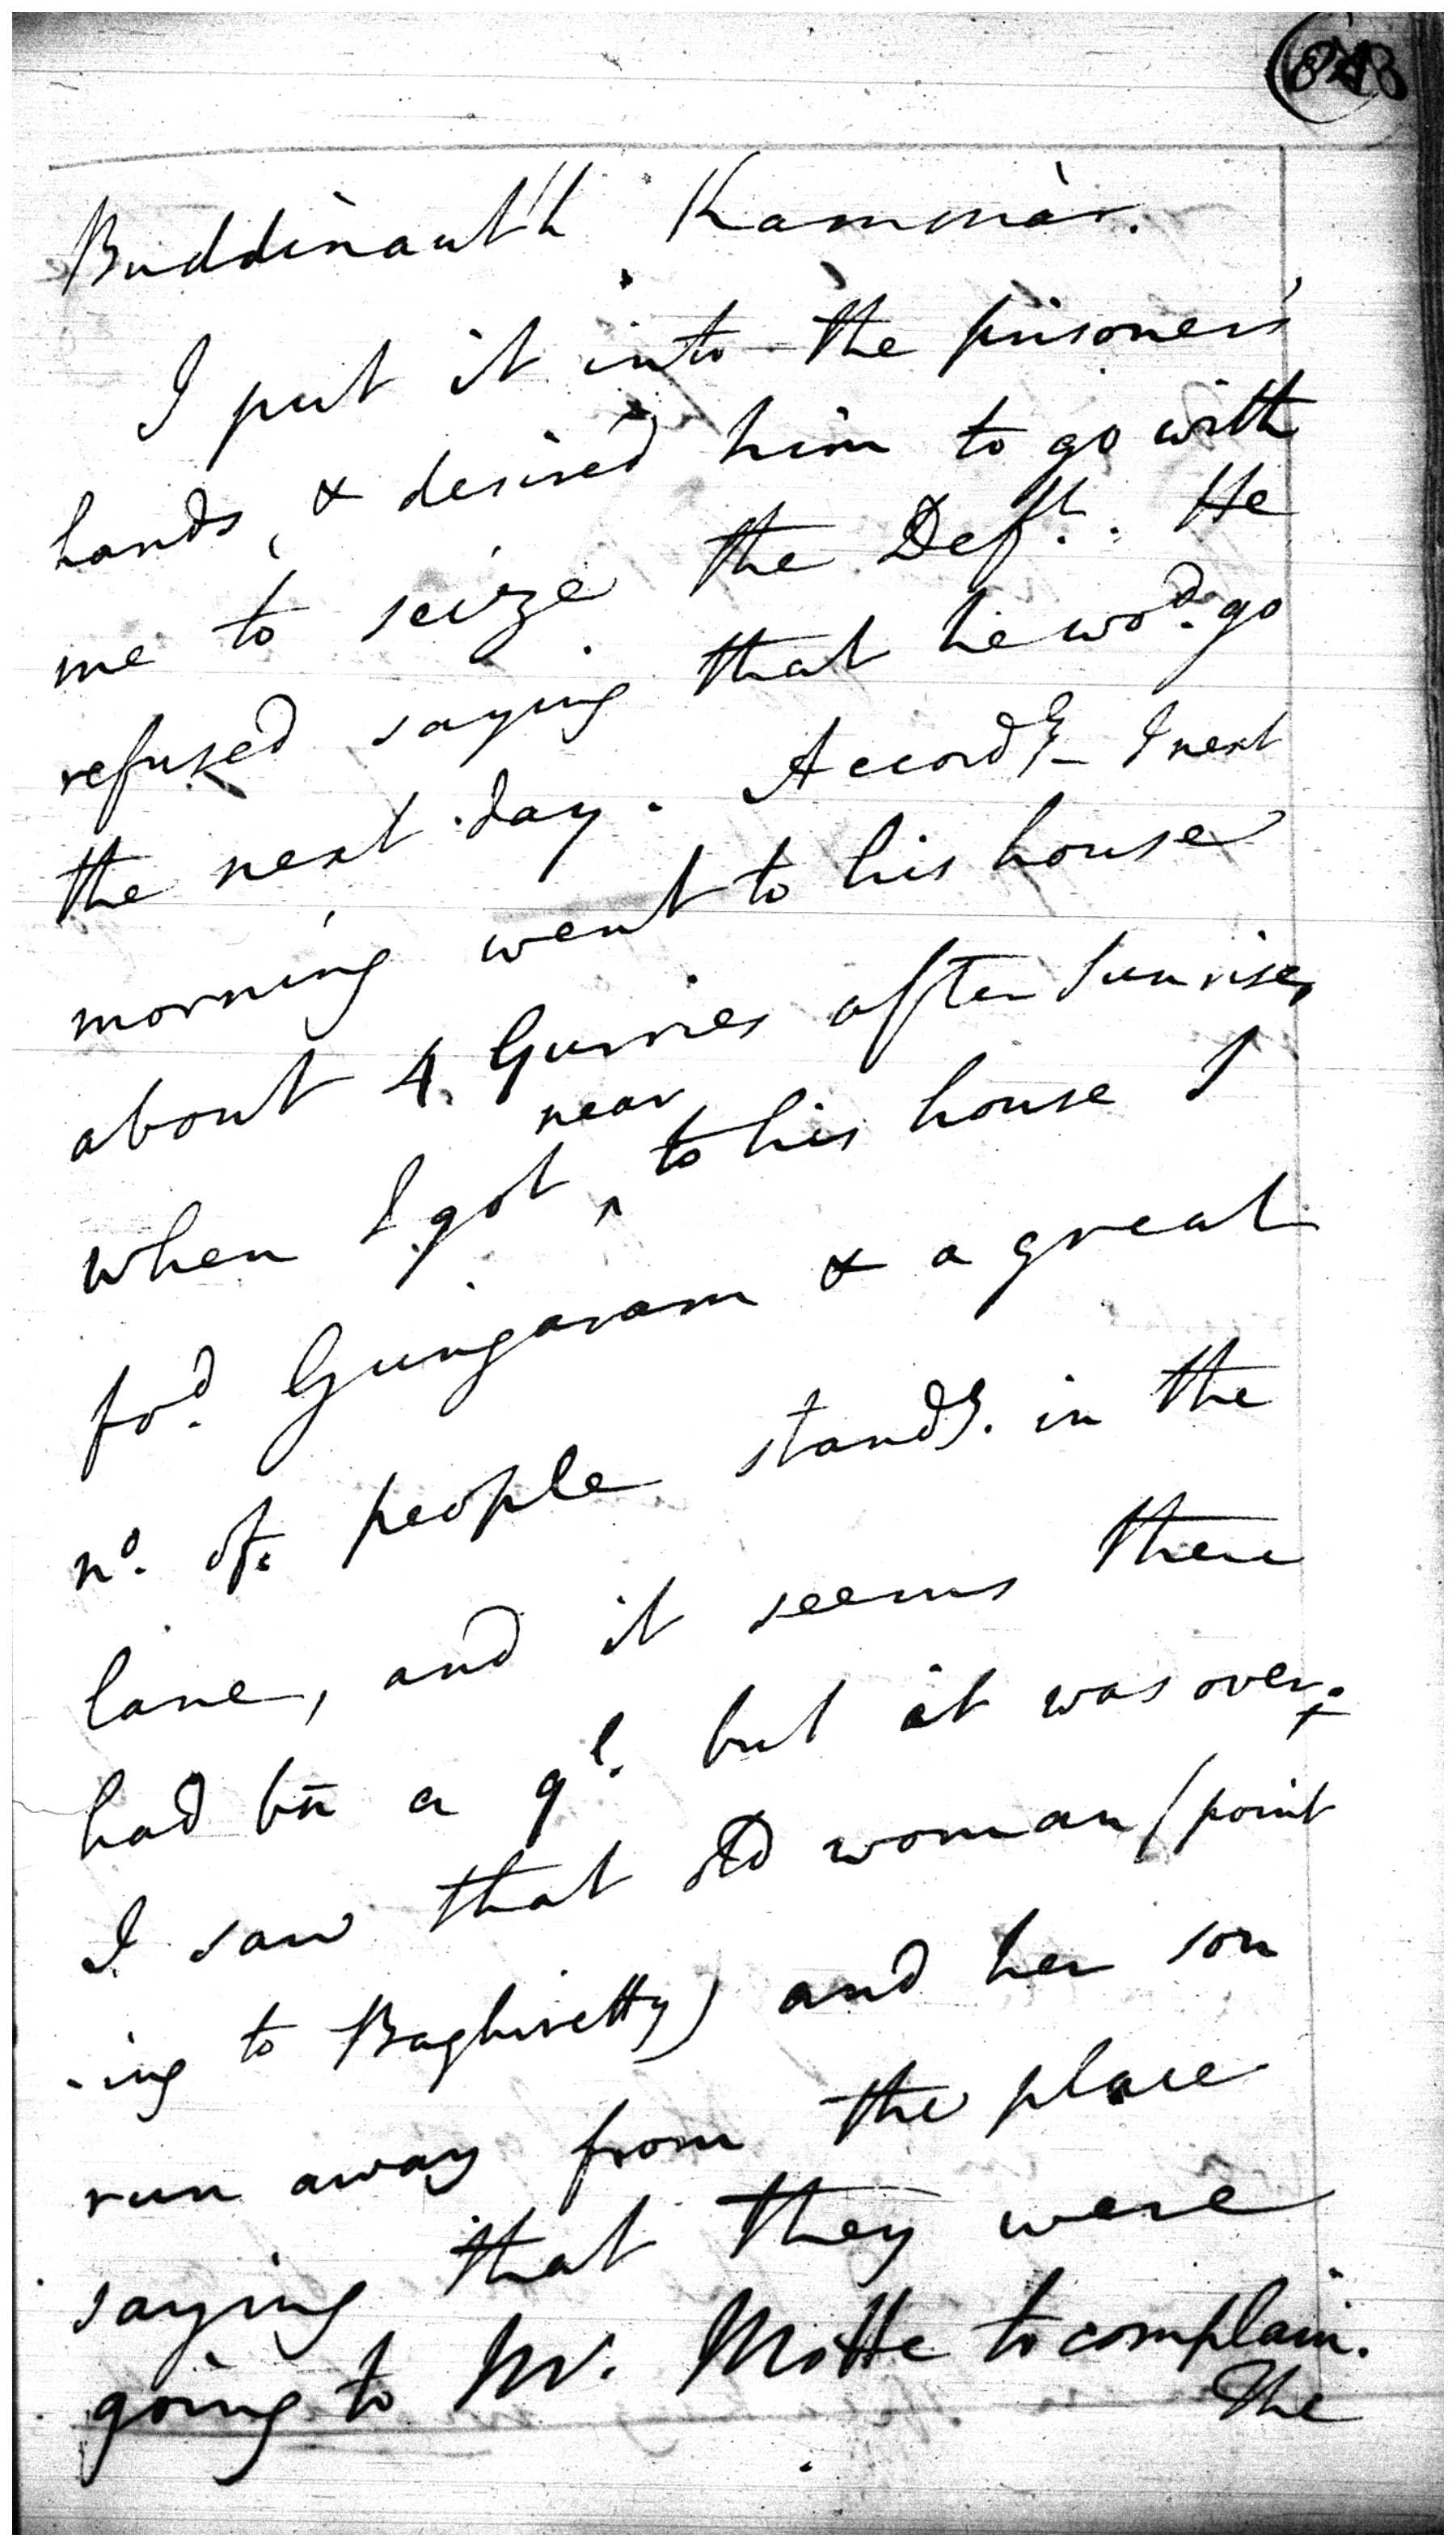 Buddinauth Kammar.
I put it into the prisoner's
hands, & desired him to go with
me to seize the Deft. He
refused saying that he wod. go
the next day. Accordy. I next
morning went to his house
about 4 Gurries after Sunrise,
when I got near to his house I
fod. Gungaram & a great
no. of people standg. in the
lane, and it seems there
had bn a ql. but it was over;
I saw that old woman (point
-ing to Baghiretty) and her son
run away from the place
saying that they were
going to Mr. Motte to complain.
The